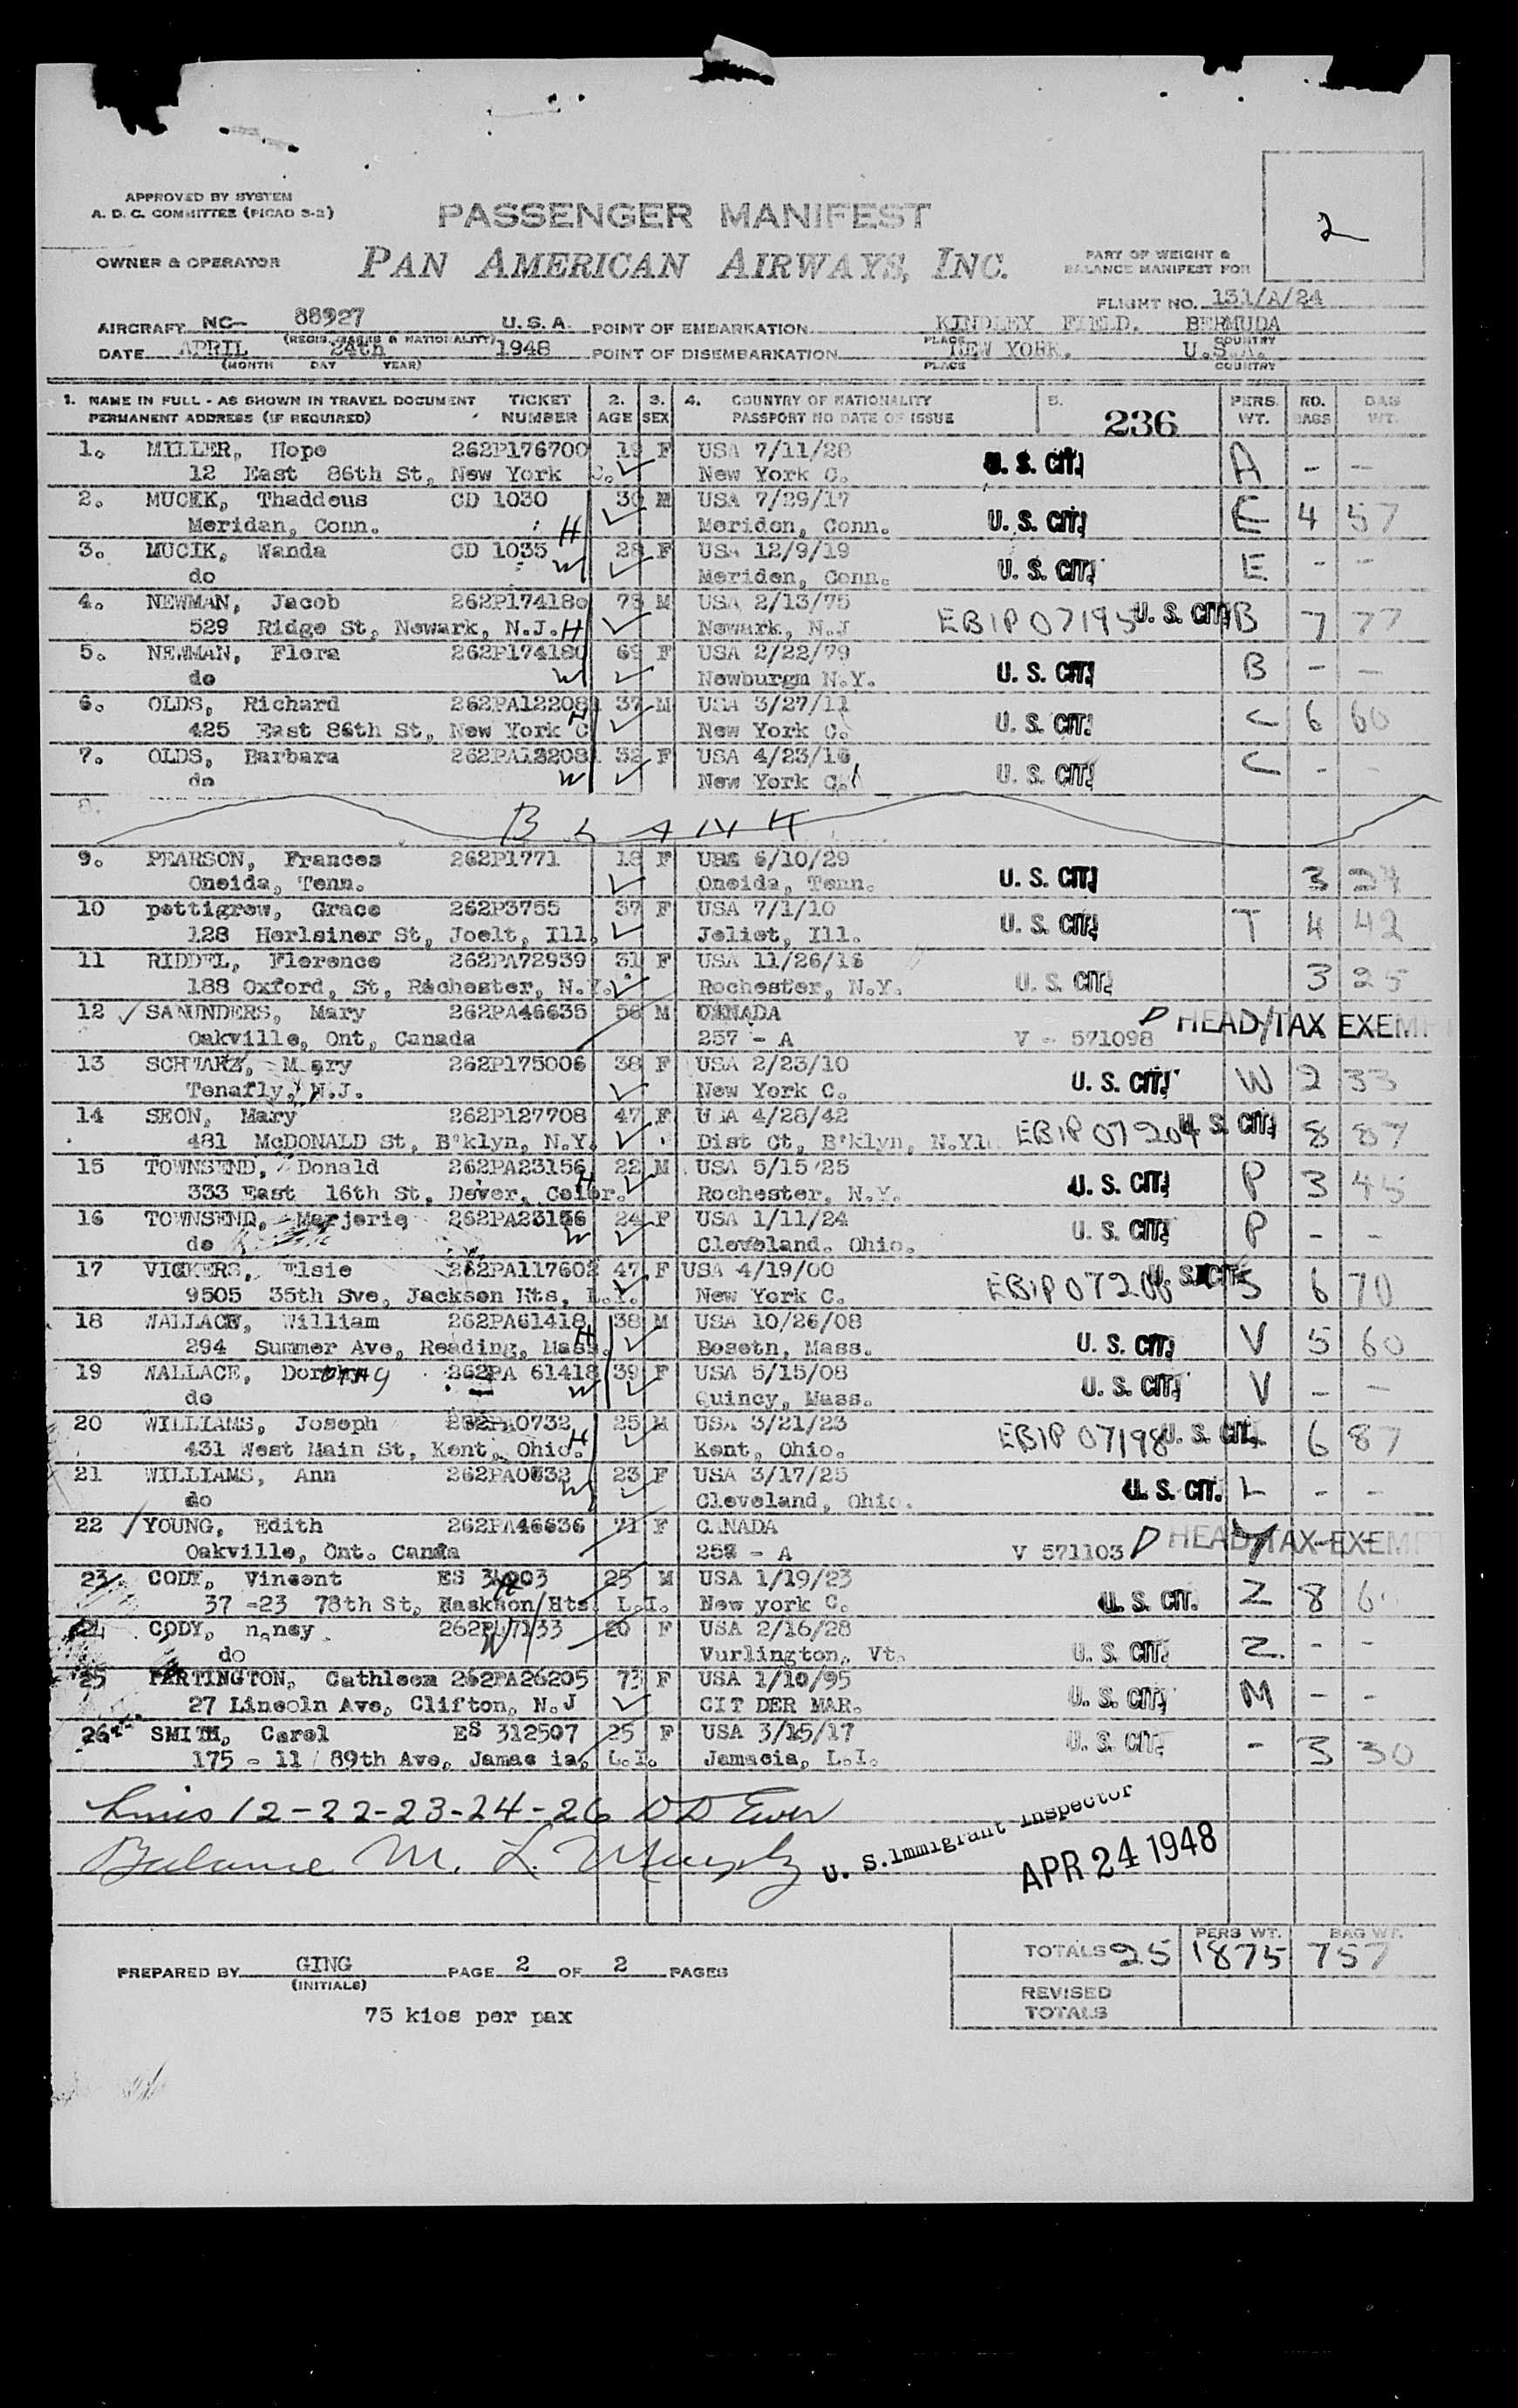 2
APPROVED BY SYSTEM
A. D. C. COMMITTEE (PICAO 3-2)
PASSENGER MANIFEST
OWNER & OPERATOR PAN AMERICAN AIRWAYS, INC. PART OF WEIGHT &
BALANCE MANIFEST FOR
FLIGHT NO. 131/A/24
AIRCRAFT NC- 88927 U.S.A. POINT OF EMBARKATION KINDLEY FIELD. BERMUDA
(REGIS. MARKS & NATIONALITY) PLACE COUNTRY
DATE APRIL 24th 1948 POINT OF DISEMBARKATION NEW YORK. U.S.A.
(MONTH DAY YEAR) PLACE COUNTRY
1. NAME IN FULL - AS SHOWN IN TRAVEL DOCUMENT TICKET 2. 3. 4. COUNTRY OF NATIONALITY 5. PERS. NO. BAG
PERMANENT ADDRESS (IF REQUIRED) NUMBER AGE SEX PASSPORT NO DATE OF ISSUE 236 WT. BAGS WT.
1. MILLER, Hope 262P176700 19 F USA 7/11/28 U. S. CIT. A - -
12 East 86th St, New York C. New York C.
2. MUCIK, Thaddeus CD 1030 30 M USA 7/29/17 U. S. CIT. E 4 57
Meridan, Conn. H Meriden, Conn.
3. MUCIK, Wanda CD 1035 28 F USA 12/9/19 U. S. CIT. E - -
do W Meriden, Conn.
4. NEWMAN, Jacob 262P174180 73 M USA 2/13/75 EBIP 07195 U. S. CIT. B 7 77
529 Ridge St, Newark, N.J. H Newark, N.J
5. NEWMAN, Flora 262P174180 69 F USA 2/22/79 U. S. CIT. B - -
do W Newburgm N.Y.
6. OLDS, Richard 262PA12208 37 M USA 3/27/11 U. S. CIT. C 6 60
425 East 86th St, New York C H New York C.
7. OLDS, Barbara 262PA12208 32 F USA 4/23/16 U. S. CIT. C - -
do W New York C.
8. BLANK
9. PEARSON, Frances 262P1771 18 F USA 6/10/29 U. S. CIT. 3 24
Oneida, Tenn. Oneida, Tenn.
10 pettigrew, Grace 262P3755 37 F USA 7/1/10 U. S. CIT. T 4 42
128 Herlsiner St, Joelt, Ill. Joliet, Ill.
11 RIDDEL, Florence 262PA72939 31 F USA 11/26/16 U. S. CIT. 3 25
188 Oxford, St, Rochester, N.Y. Rochester, N.Y.
12 SAUNDERS, Mary 262PA46635 56 M CANADA P HEAD TAX EXEMPT
Oakville, Ont, Canada 257 - A V - 571098
13 SCHWARZ, Mary 262P175006 38 F USA 2/23/10 U. S. CIT. W 2 33
Tenafly, N.J. New York C.
14 SEON, Mary 262P127708 47 F USA 4/28/42 EBIP 07204 U. S. CIT. 8 87
481 McDONALD St, B'klyn, N.Y. Dist Ct, B'klyn, N.Y
15 TOWNSEND, Donald 262PA23156 22 M USA 5/15/25 U. S. CIT. P 3 45
333 East 16th St, Dever, Color. H Rochester, N.Y.
16 TOWNSEND, Marjorie 262PA23156 24 F USA 1/11/24 U. S. CIT. P - -
do W Cleveland. Ohio.
17 VICKERS, Elsie 262PA117602 47 F USA 4/19/00 EBIP 07206 U. S. CIT. S 6 70
9505 35th Sve, Jackson Hts, L.I. New York C.
18 WALLACE, William 262PA61418 38 M USA 10/26/08 U. S. CIT. V 5 60
294 Summer Ave, Reading, Mass. H Bosetn, Mass.
19 WALLACE, Dorothy 262PA 61418 39 F USA 5/15/08 U. S. CIT. V - -
do W Quincy, Mass.
20 WILLIAMS, Joseph 262PA0732 25 M USA 3/21/23 EBIP 07198 U. S. CIT. L 6 87
431 West Main St, Kent, Ohio. H Kent, Ohio.
21 WILLIAMS, Ann 262PA0732 23 F USA 3/17/25 U. S. CIT. L - -
do W Cleveland, Ohio.
22 YOUNG, Edith 262PA46636 71 F CANADA P HEAD TAX EXEMPT
Oakville, Ont. Canda 257 - A V 571103
23 CODY, Vincent ES 34903 25 M USA 1/19/23 U. S. CIT. Z 8 6
37 -23 78th St, Haskson Hts. L.I. New york C.
24 CODY, nancy 20 F USA 2/16/28 U. S. CIT. Z - -
do W Vurlington, Vt.
25 PARTINGTON, Cathleen 262PA26205 73 F USA 1/10/95 U. S. CIT. M - -
27 Lincoln Ave, Clifton, N.J CIT DER MAR.
26 SMITH, Carol ES 312507 25 F USA 3/15/17 U. S. CIT. - 3 30
175 - 11 89th Ave, Jamac ia, L.I. Jamacia, L.I.
Lines 12-22-23-24-26 DD Ewer
Balance M. L. Murphy U. S. Immigrant Inspector
APR 24 1948
PERS WT. BAG WT.
TOTALS 25 1875 757
PREPARED BY GING PAGE 2 OF 2 PAGES
(INITIALS)
REVISED
TOTALS
75 kios per pax